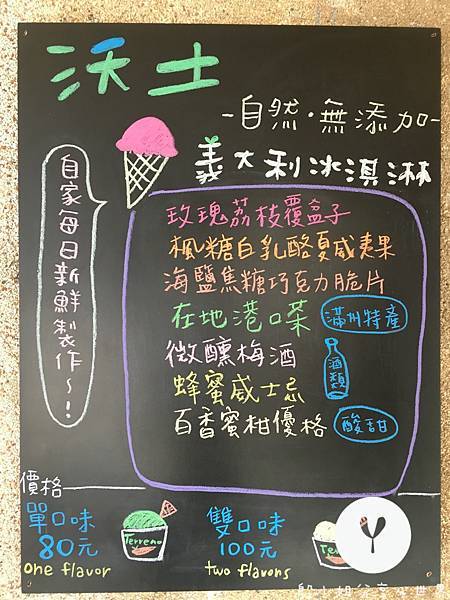 沃土
-自然·無添加-
義大利冰淇淋
自家每日新鮮製作~!
玫瑰荔枝覆盆子
楓糖白乳酪夏威夷果
海鹽焦糖巧克力脆片
在地港口茶 滿州特產
微醺梅酒 酒類
蜂蜜威士忌
百香蜜柑優格 酸甜
價格
單口味
80元
one flavor
Terreno
雙口味
100元
two flavors